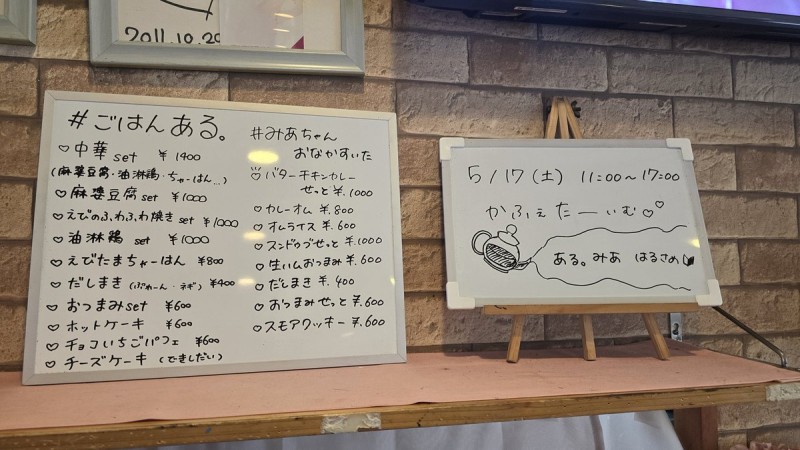 2011.10.29
#ごはんある。
♡中華set ¥1400
(麻婆豆腐・油淋鶏・ちゃーはん...)
♡麻婆豆腐set ¥1000
♡えびのふわふわ焼きset ¥1000
♡油淋鶏set ¥1000
♡えびたまちゃーはん ¥800
♡だしまき(ぷれーん・ネギ) ¥400
♡おつまみset ¥600
♡ホットケーキ ¥600
♡チョコいちごパフェ ¥600
♡チーズケーキ(できしだい)
#みあちゃん
おなかすいた
♡バターチキンカレー
せっと ¥.1000
♡カレーオム ¥.800
♡オムライス ¥.600
♡スンドゥブせっと ¥.1000
♡生ハムおつまみ ¥.600
♡だしまき ¥.400
♡おつまみせっと ¥.600
♡スモアクッキー ¥.600
5/17(土) 11:00～17:00
かふぇたーいむ♡♡
ある。みあ はるさめ